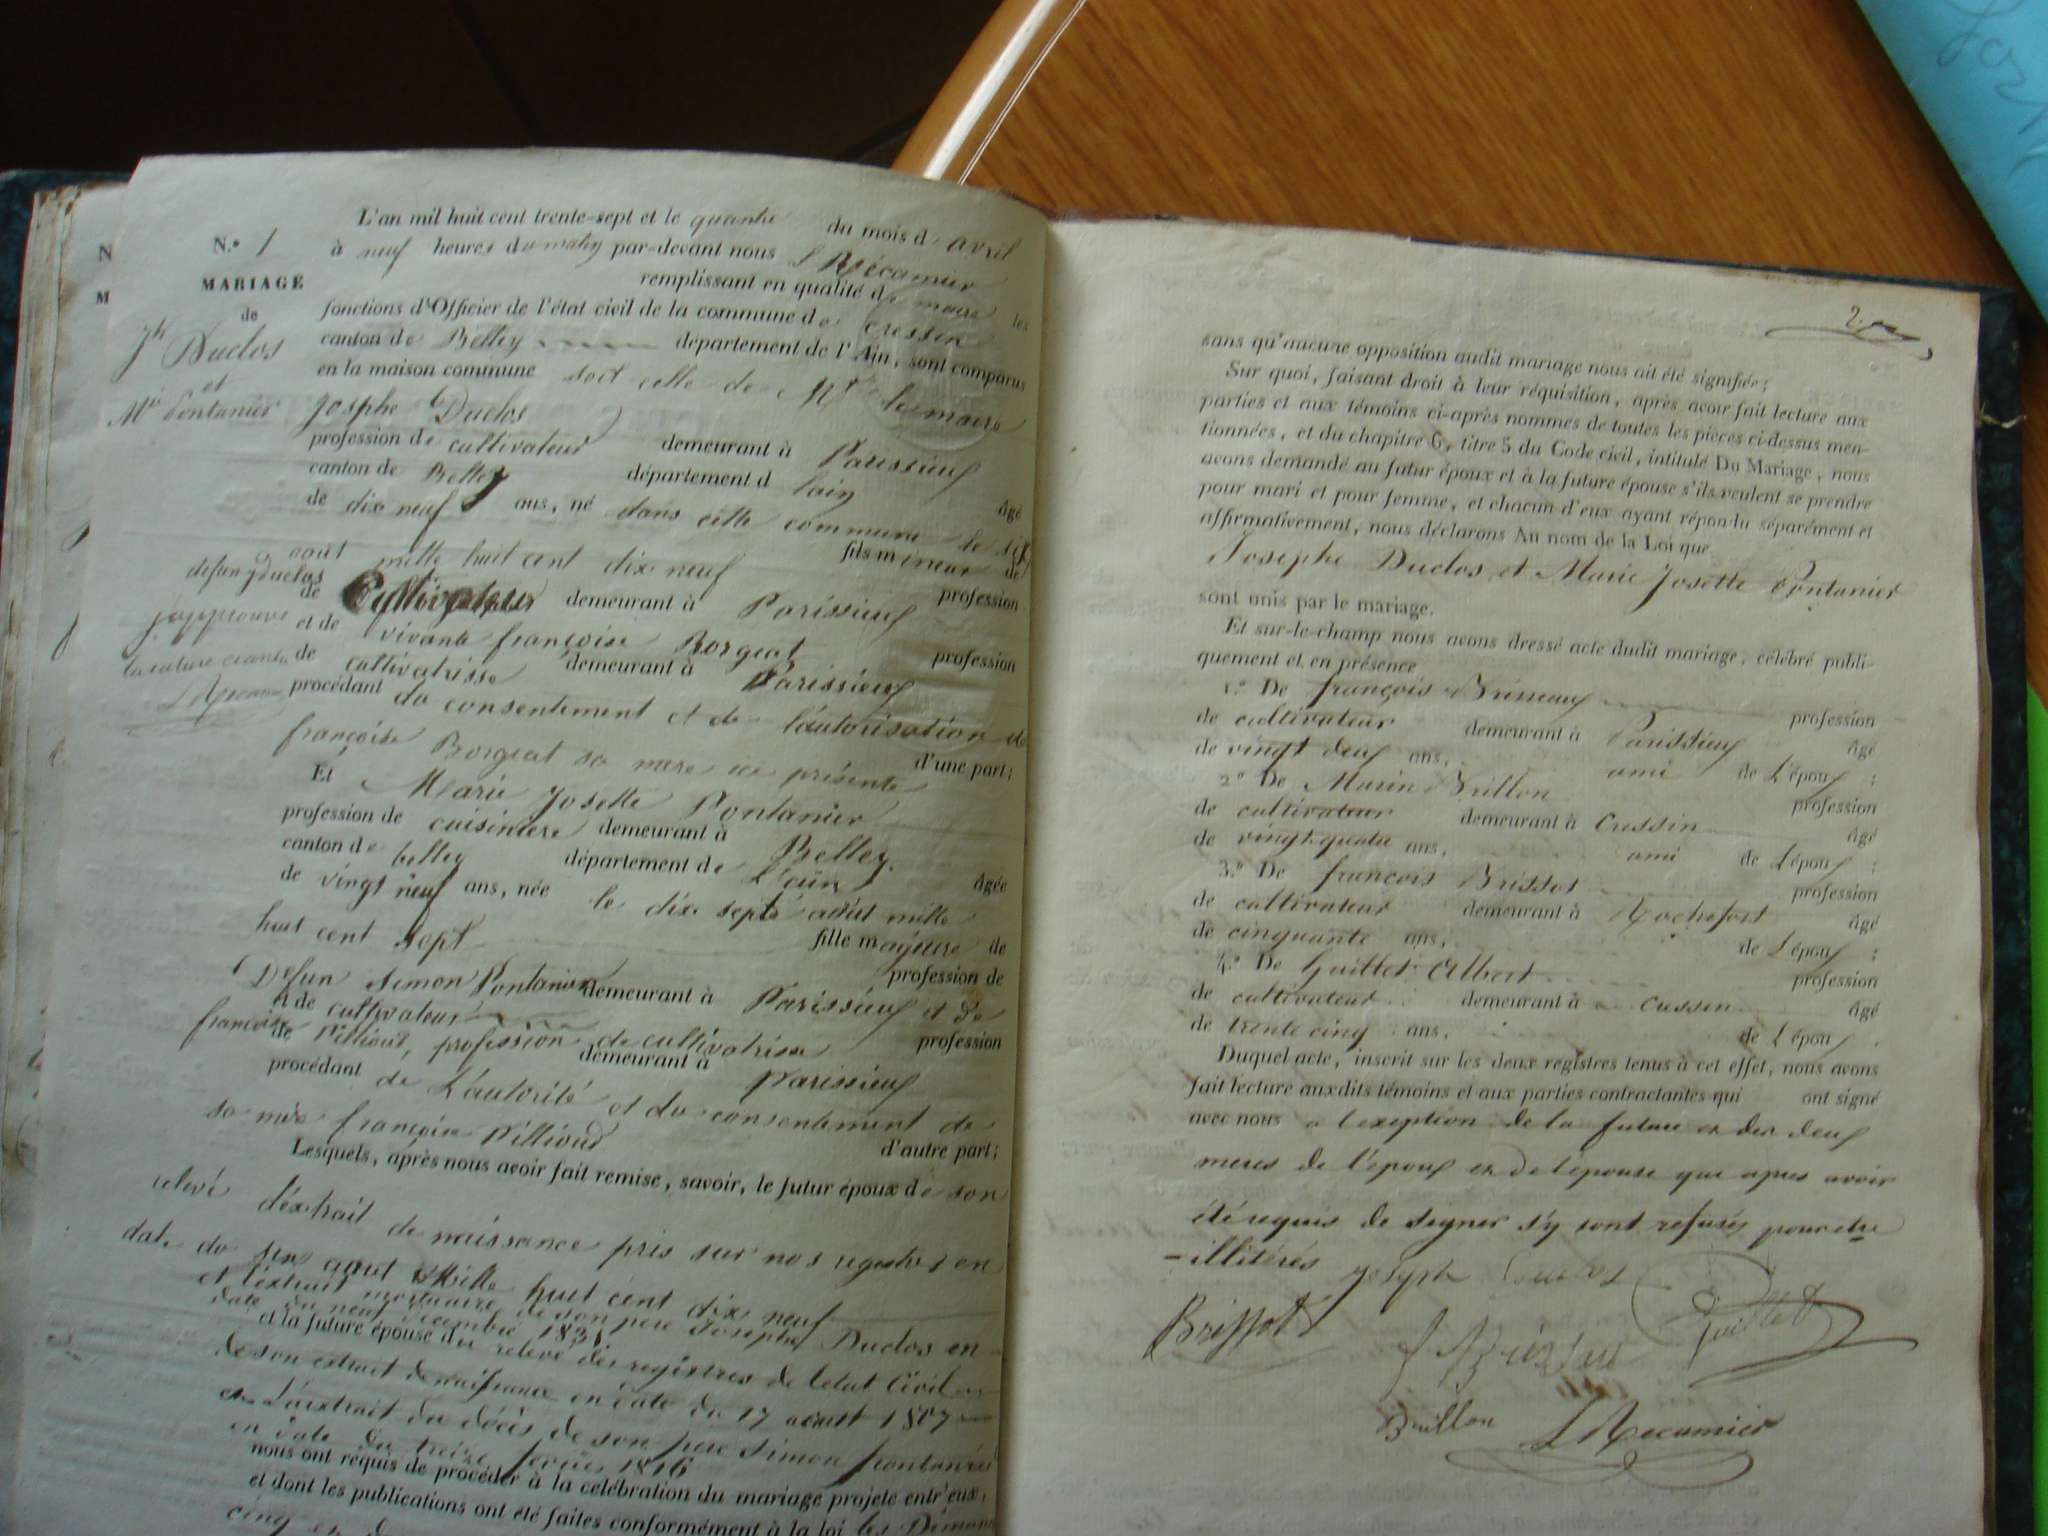 N.o 1
MARIAGE
de
Jh Duclos
et
Mie Pontanier
L'an mil huit cent trente-sept et le quantre du mois d'avril
à neuf heures du matin par-devant nous L Récamier
remplissant en qualité de maire les
fonctions d'Officier de l'état civil de la commune de cressin
canton de Belley département de l'Ain, sont comparus
en la maison commune soit celle de Mr le maire
Josphe Duclos
profession de cultivateur demeurant à Parissieux
canton de Belley département d lain âgé
de dix neuf ans, né dans cette commune le six
août mille huit cent dix neuf fils mineur de
defun Duclos profession
de Cultivateur demeurant à Parissieux
japprouve
et de vivante françoise Borgeat profession
la rature
de cultivatrisse demeurant à Parissieux
LRecamier
procédant du consentement et de l'autorisation de
françoise Borgeat sa mere ici présente d'une part;
Et Marie Josette Pontanier
profession de cuisiniere demeurant à Belley
canton de belley département de L'ain âgée
de vingt neuf ans, née le dix sept août mille
huit cent sept fille majeure de
Defun Simon Pontanier profession de
de cultivateur demeurant à Parissieux et de
françoise Pillioud, profession de cultivatrisse profession
de demeurant à Parissieux
procédant de L'autorité et du consentement de
sa mère françoise Pillioud d'autre part;
Lesquels, après nous avoir fait remise, savoir, le futur époux de son
relevé d'éxtrait de naissance pris sur nos registres en
date du six aout Mille huit cent dix neuf
et l'extrait mortuaire de son pere Josephe Duclos en
date du neuf decembre 1831
et la future épouse du relevé des registres de letat Civil
de son extrait de naissance en date du 17 aoust 1807
et L'extrait du décès de son pere Simon pontanier
en date du treize 1816
nous ont requis de procéder à la célébration du mariage projeté entr'eux,
et dont les publications ont été faites conformément à la loi les
cinq et
2.
sans qu'aucune opposition audit mariage nous ait été signifiée;
Sur quoi, faisant droit à leur réquisition, après avoir fait lecture aux
parties et aux témoins ci-après nommés de toutes les pièces ci-dessus men-
tionnées, et du chapitre 6, titre 5 du Code civil, intitulé Du Mariage, nous
avons demandé au futur époux et à la future épouse s'ils veulent se prendre
pour mari et pour femme, et chacun d'eux ayant répondu séparément et
affirmativement, nous déclarons Au nom de la Loi que
Josephe Duclos, et Marie Josette Pontanier
sont unis par le mariage.
Et sur-le-champ nous avons dressé acte dudit mariage, célébré publi-
quement et en présence
1.o De françois profession
de cultivateur demeurant à Parissieux âgé
de vingt deux ans, ami de L'époux;
2.o De Marin Brillon profession
de cultivateur demeurant à Cressin âgé
de vingt-quatre ans, ami de L'époux;
3.o De françois Brissot profession
de cultivateur demeurant à Rochefort âgé
de cinquante ans, de L'époux;
4.o De Guillet Albert profession
de cultivateur demeurant à cressin âgé
de trente cinq ans, de L'époux.
Duquel acte, inscrit sur les deux registres tenus à cet effet, nous avons
fait lecture auxdits témoins et aux parties contractantes qui ont signé
avec nous a l'exeption de la future et des deux
meres de l'epoux et de l'épouse que apres avoir
été requis de signer s'y sont refusés pour etre
illitérés joseph Duclos Guillet
Brissot
Brillon LRecamier